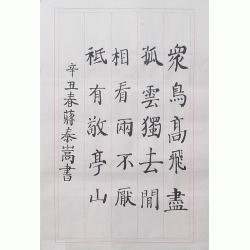 眾鳥高飛盡
孤雲獨去閒
相看兩不厭
祗有敬亭山
辛丑春蔣泰嵩書